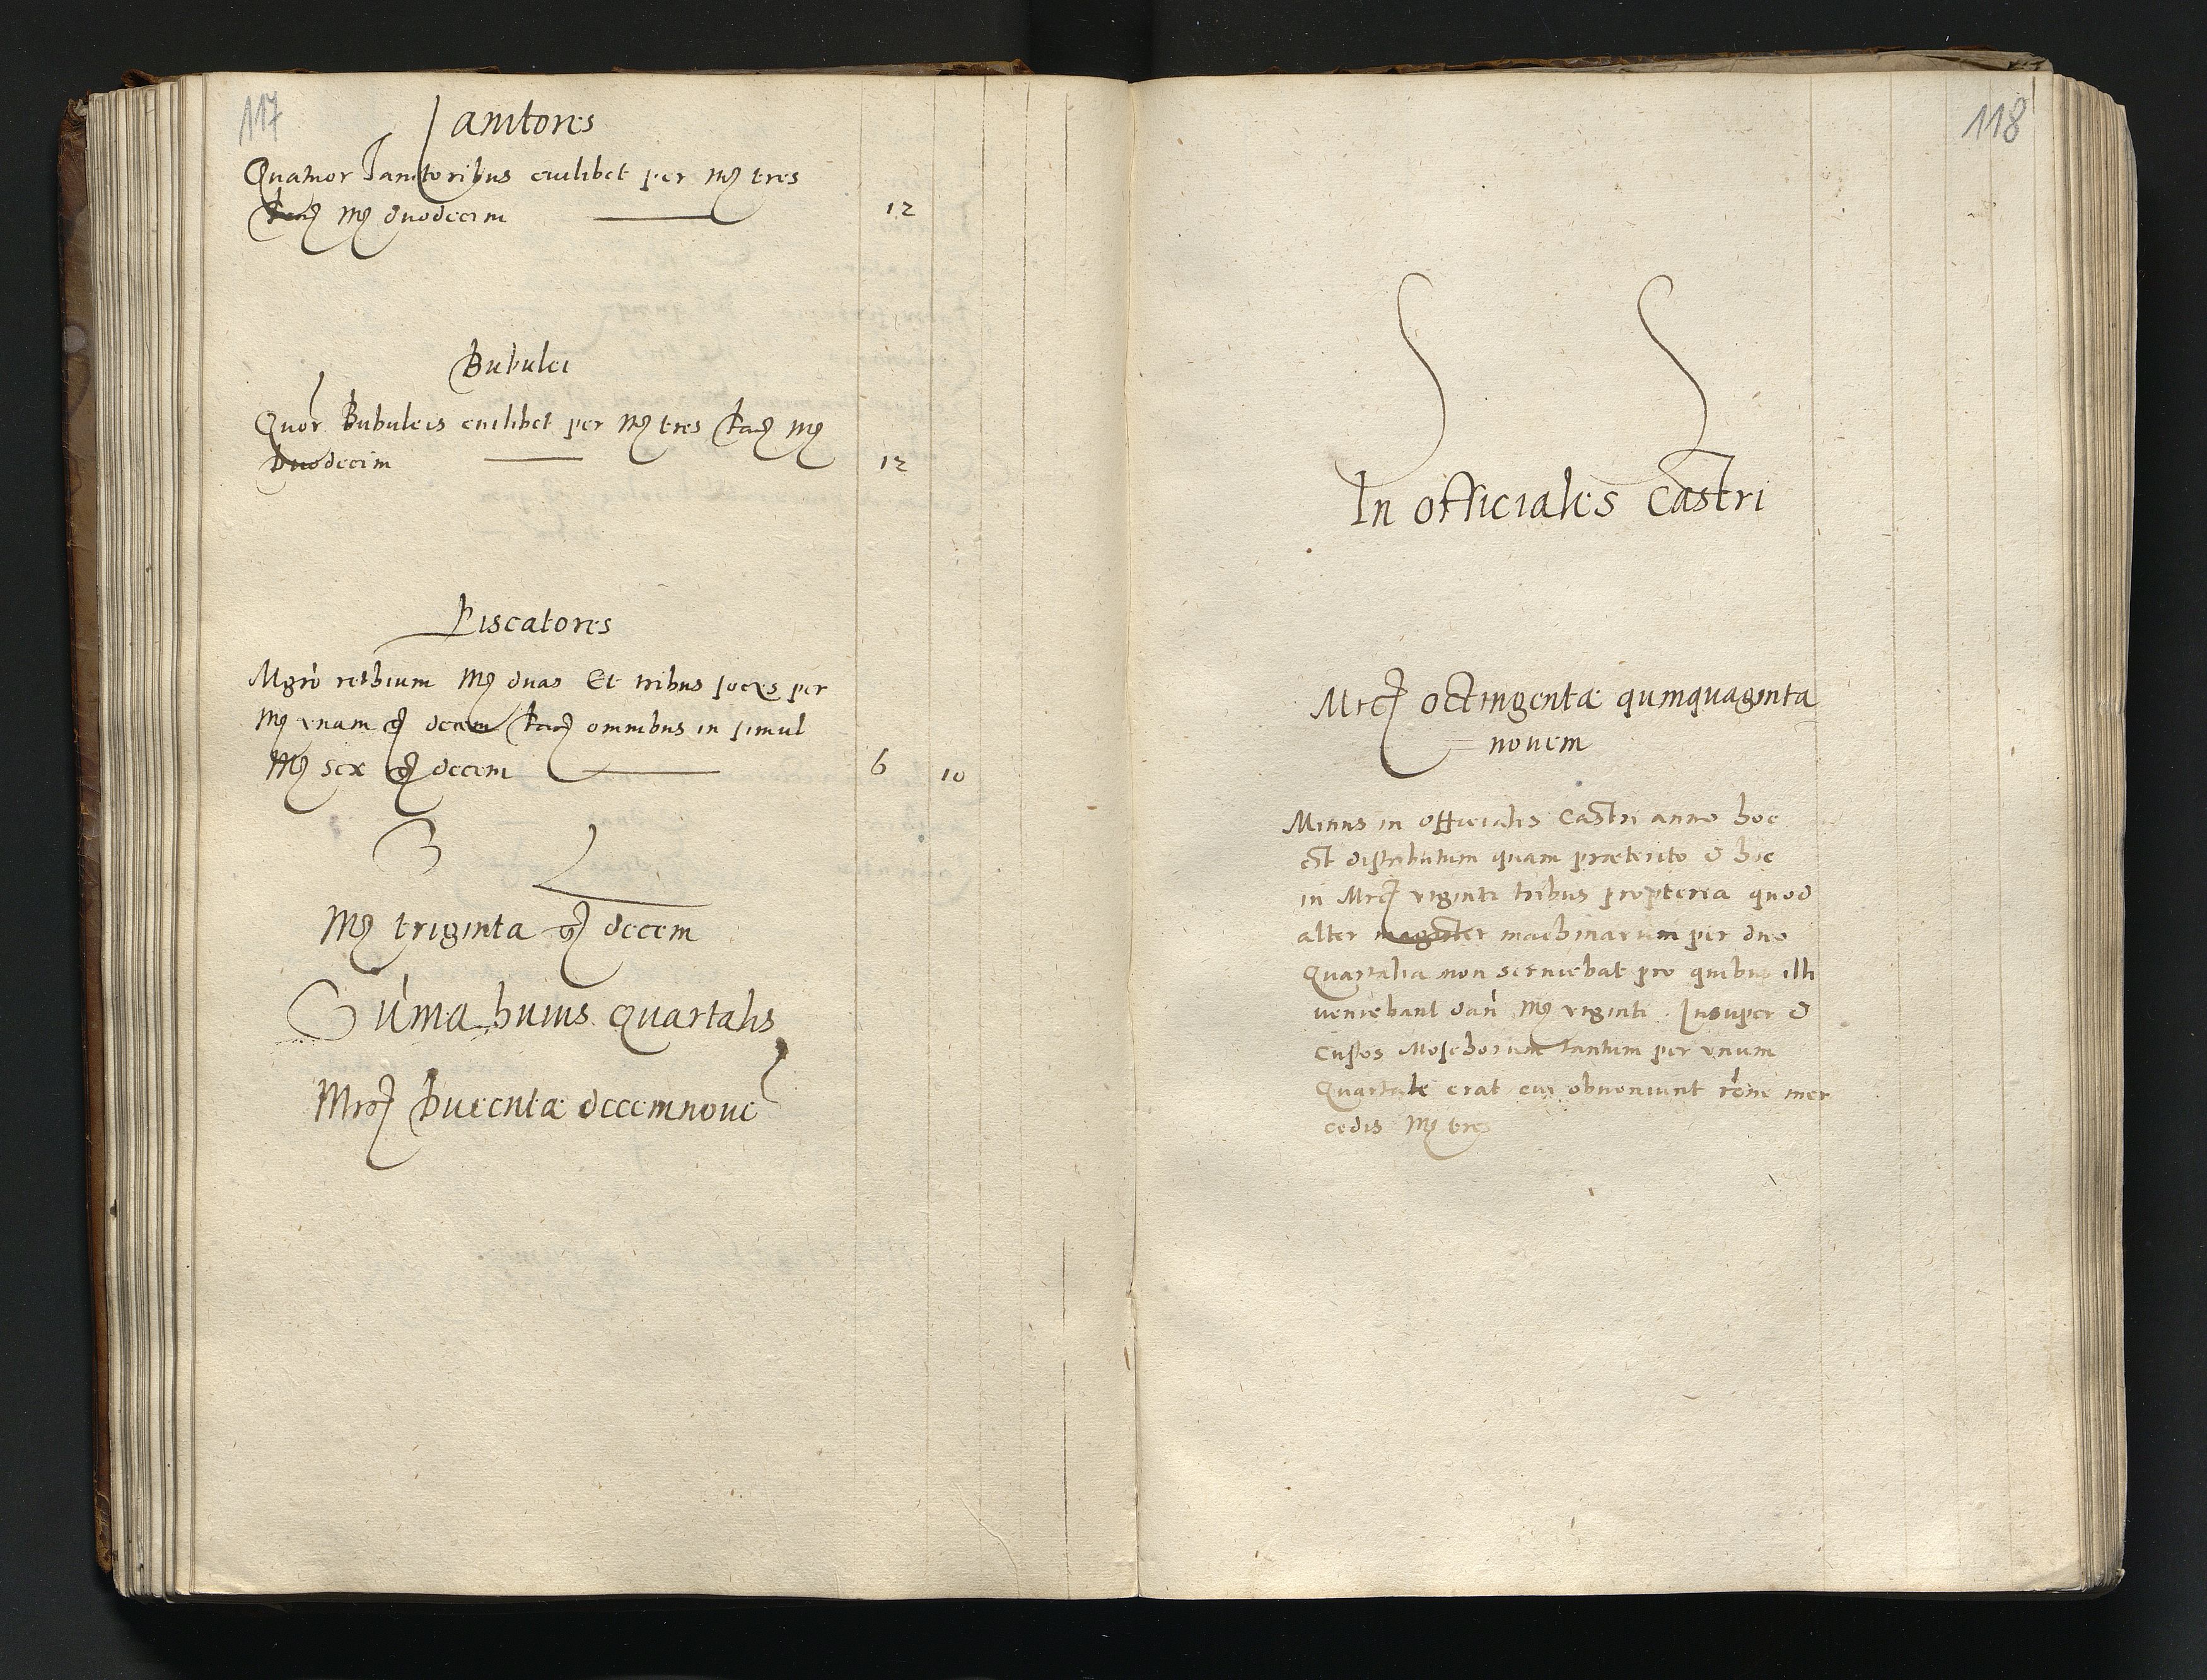 117
Janitores
Quatuor Janitoribus cuilibet per Mr tres
facit Mr duodecim 12
Bubulci
Quor Bubulcis cuilibet per Mr tres facit Mr
Duodecim 12
Piscatores
Mgro rethium Mr duas Et tribus socys per
Mr vnam gr decem facit omnibus in simul
Mr sex gr decem 6 10
S L
Mr triginta gr decem
Suma huius Quartalis
Mrcs Ducentæ decemnove
118
In officiales Castri
Mrcs octingentæ quinquaginta
novem
Minus in officiales Castri anno hoc
est distributum quam præterito & hoc
in Mrcs viginti tribus propterea quod
alter magister machinarum per duo
Quartalia non serviebat pro quibus illi
veniebant dari Mr viginti. Insuper &
Custos Moschorum tantum per vnum
Quartale erat cui obvoniunt rone mer
cedis Mr tres